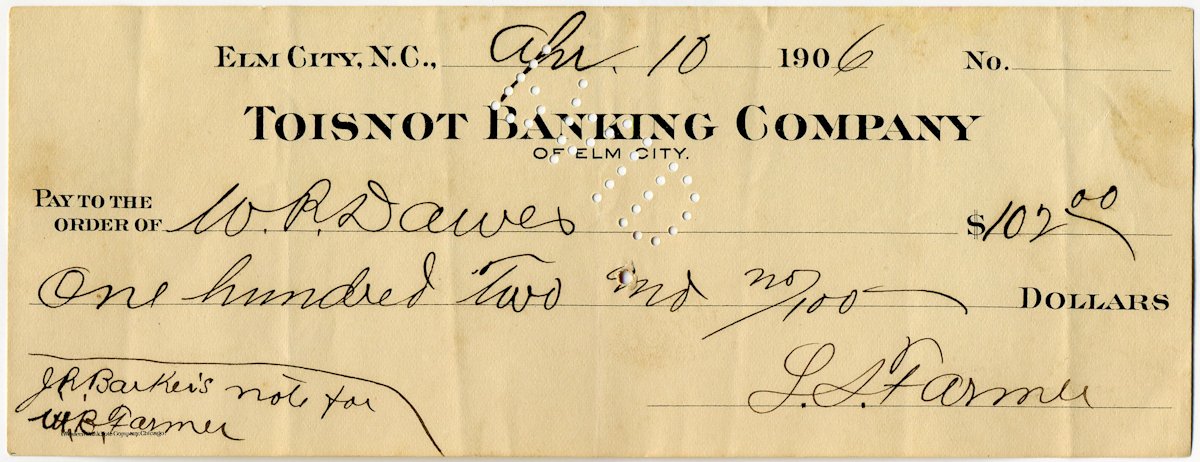 ELM CITY, N.C., Apr. 10 1906 No.
TOISNOT BANKING COMPANY
OF ELM CITY.
PAY TO THE
ORDER OF W. R. Dawes $102 00
One hundred Two and no/100 DOLLARS
J.R. Barker's note for
W.B. Farmer
L. S. Farmer
Company, Chicago